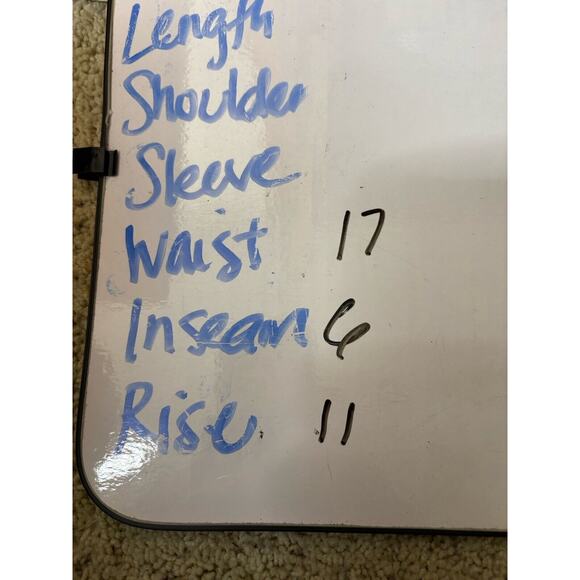 Length
Shoulder
Sleeve
Waist 17
Inseam 6
Rise 11